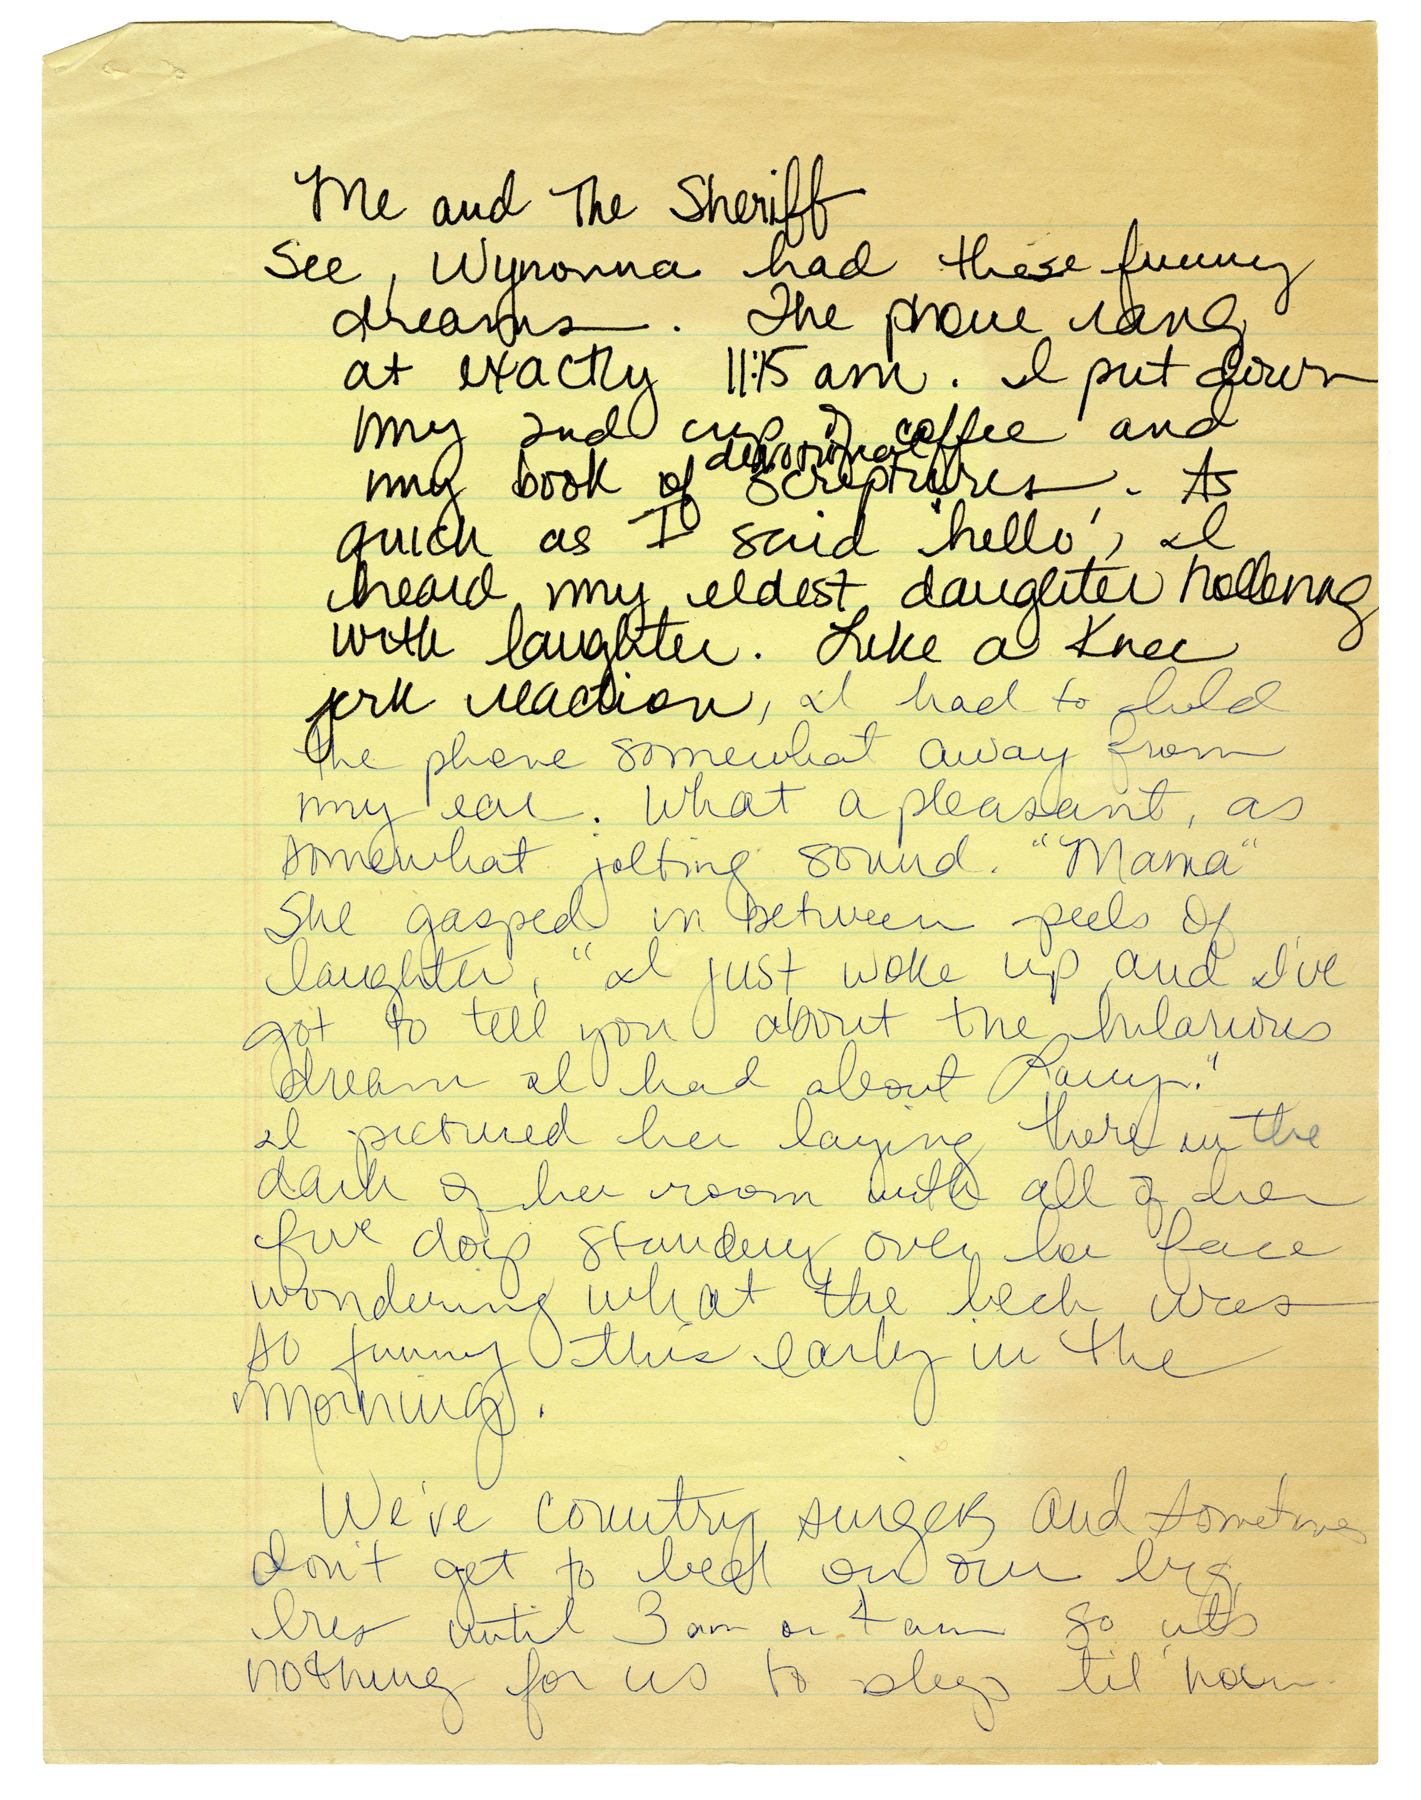 Me and The Sheriff
See, Wynonna had these funny
dreams. The phone rang
at exactly 11:15 am. I put down
my 2nd cup of coffee and
devotional
my book of scriptures. As
quick as I said "hello", I
heard my eldest daughter hollering
with laughter. Like a knee
jerk reaction, I had to hold
the phone somewhat away from
my ear. What a pleasant, as
somewhat jolting sound. "Mama"
She gasped in between peels of
laughter, "I just woke up and I've
got to tell you about the hilarious
dream I had about Larry."
I pictured her laying there in the
dark of her room with all of her
five dogs standing over her face
wondering what the heck was
so funny this early in the
morning.
We've country singers and sometimes
don't get to bed on our big
bus until 3 am or 4 am so it's
nothing for us to sleep til' noon.